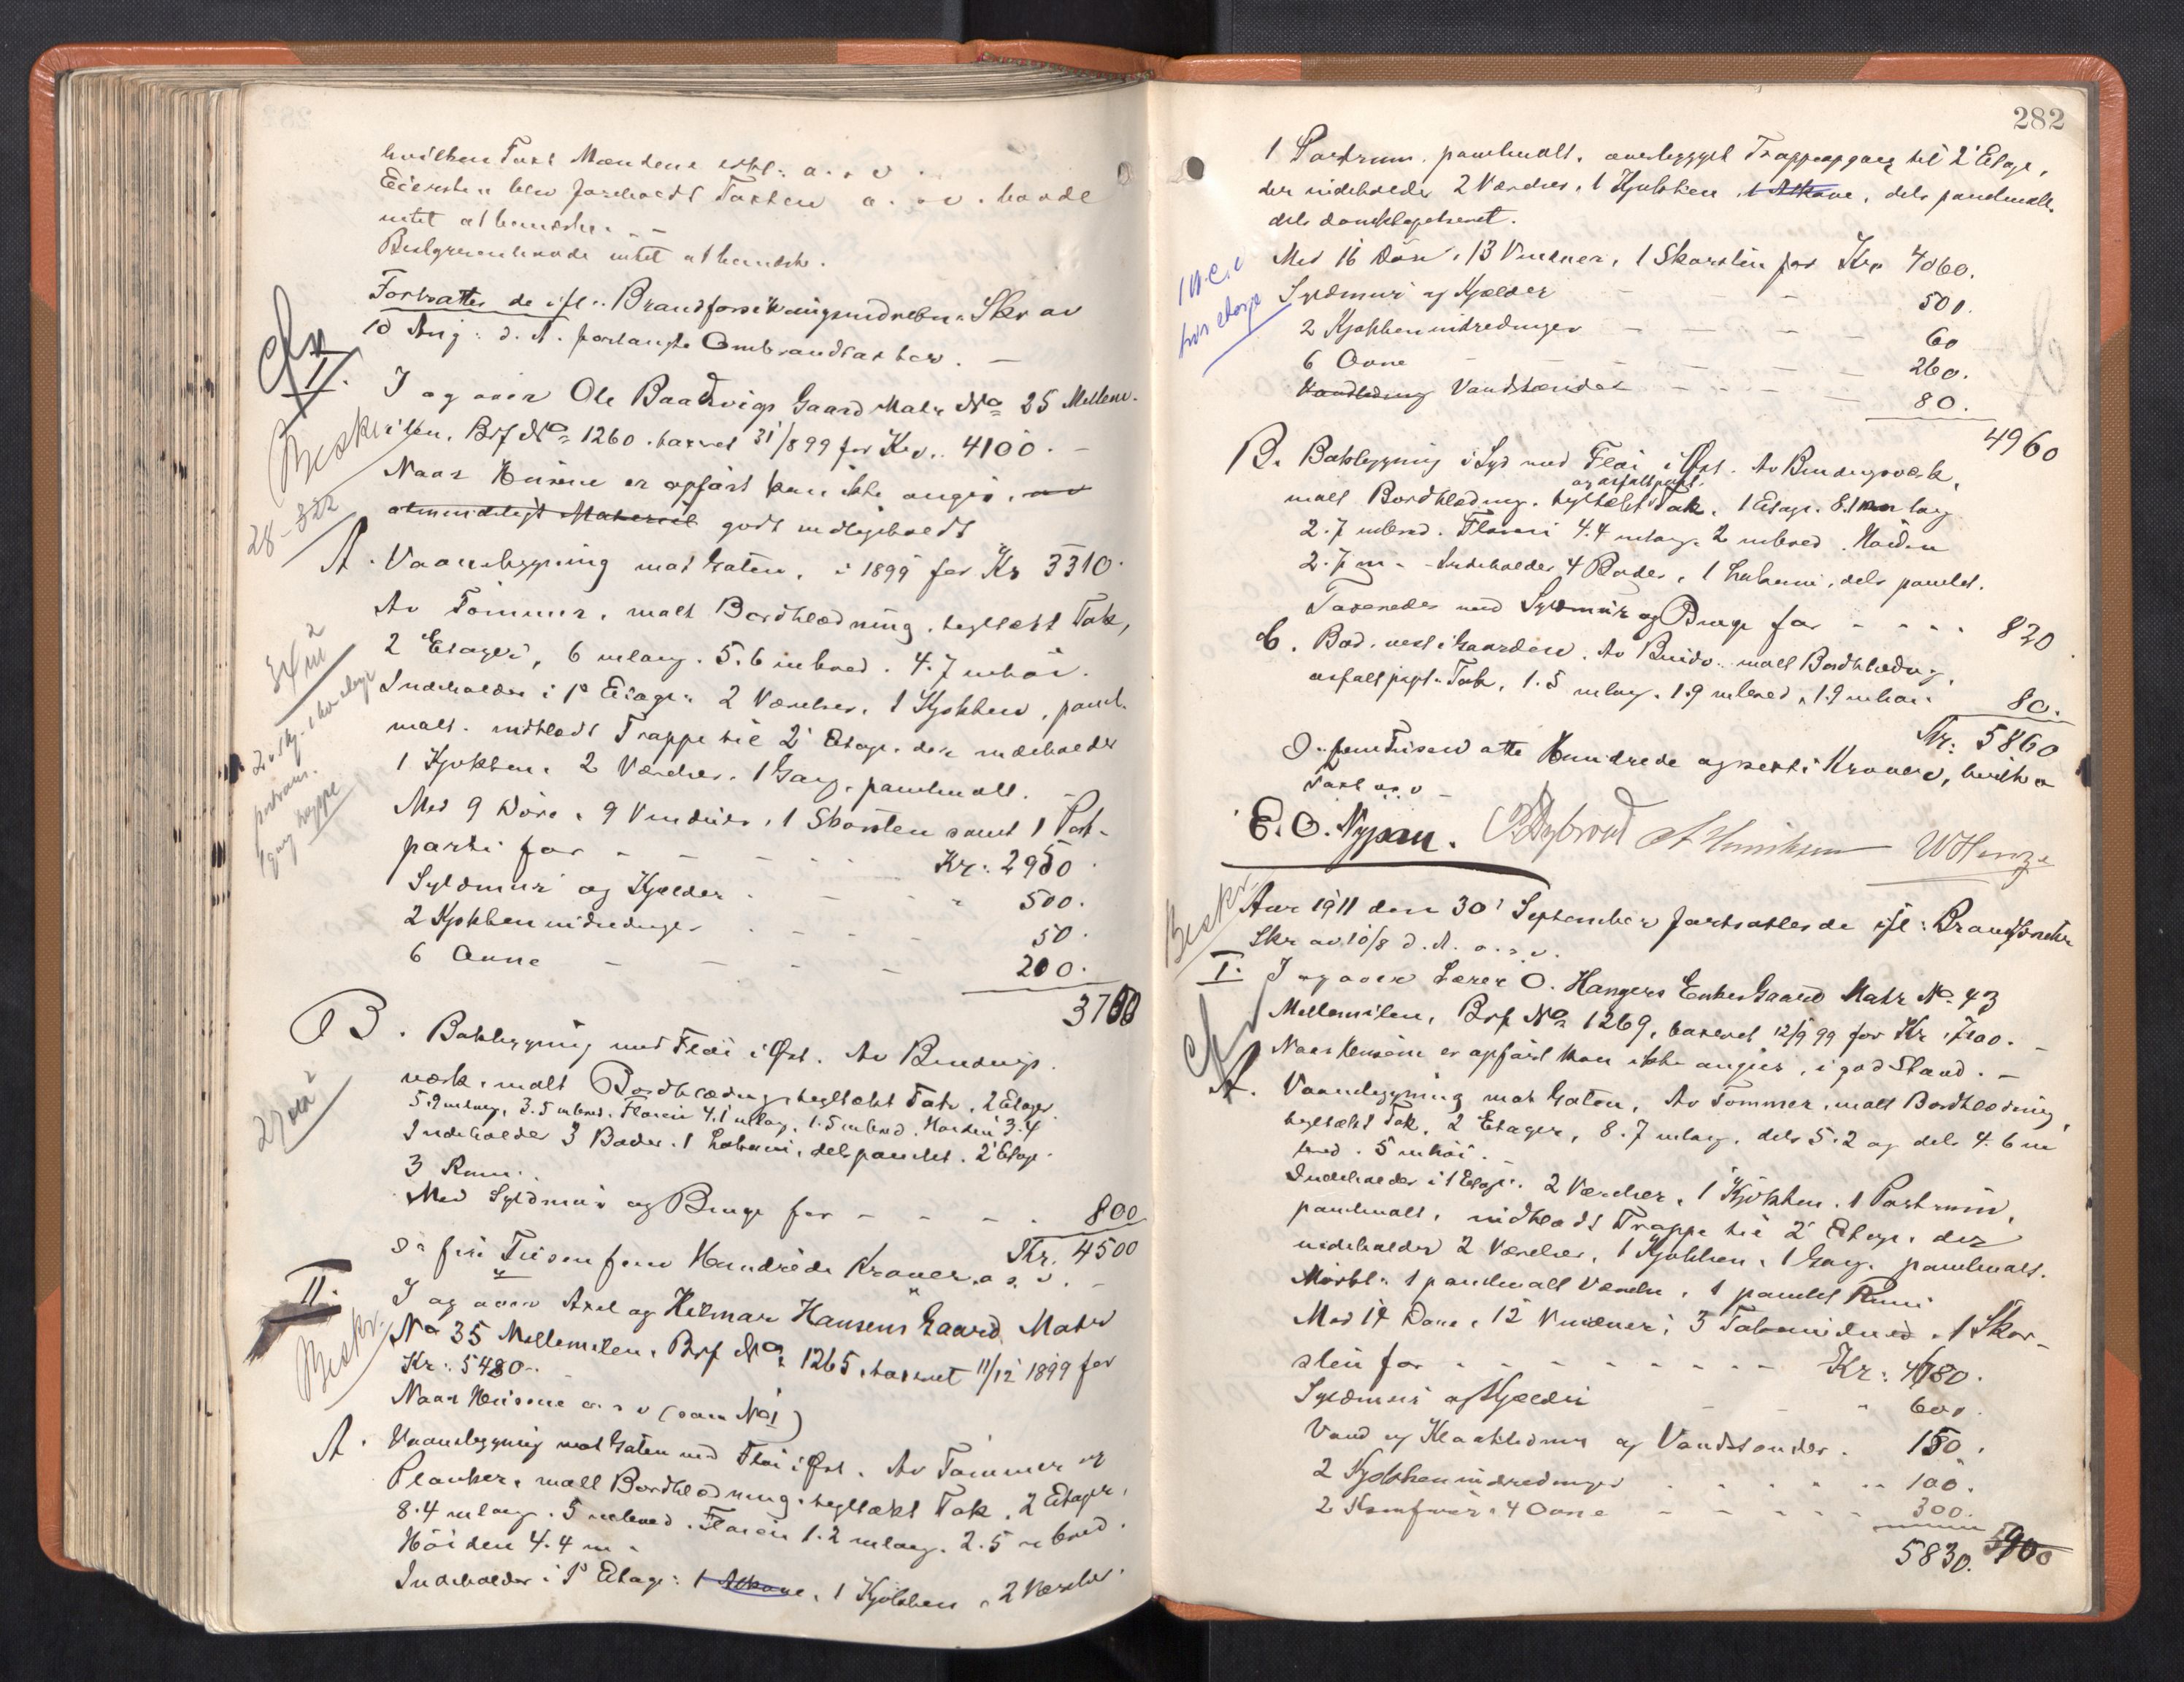 hvilken Taxt Mændene erkl: o. s. v.
Eiersken blev foreholdt Taxten o. s. v. havde
intet at bemærke. -
Bestyreren havde intet at bemærke.
Fortsattes de ifl: Brandforsikringsindretn: Skr av
10 Aug: d. A. forlangte Ombrandtaxter. -
I.
I og over Ole Baardsvigs Gaard Matr No 25 Mellem-
milen, Brf No 1260. taxeret 31/8 99 for Kr. 4100. -
Beskr
Naar Husene er opført kan ikke angis. av
almindeligt Materiel godt vedligeholdt
28-322
A. Vaaningsbygning mot Gaten, i 1899 for Kr 3310.
Av Tømmer, malt Bordklædning, tegltækt Tak,
2 Etager, 6 m lang. 5.6 m bred. 4.7 m høi.
34 m2
Indeholder i 1ste Etage: 2 Værelser, 1 Kjøkken, panel-
malt. indklædt Trappe til 2' Etage, der indeholder
1 Kjøkken, 2 Værelser, 1 Gang, panelmalt. -
1 gang trappe
Med 9 Døre, 9 Vinduer, 1 Skorsten samt 1 Port-
parti for - - - - Kr: 2950.
Syldmur og Kjelder - - - 500.
2 Kjøkkenindredninger - - - 50.
6 Ovne - - - - 200.
3700
B. Bakbygning med Fløi i Øst. Av Bindings-
værk, malt Bordklædning, tegltækt Tak, 2 Etager
5.9 m lang, 3.5 m bred. Fløien 4.1 m lang, 1.5 m bred. Høiden 3.4
27 m2
Indeholder 3 Boder, 1 Lokum, dels panelet. 2' Etage
3 Rum.
Med Syldmur og Binge for - - - 800
Kr. 4500
Er fire Tusen fem Hundrede Kroner o. s. v. -
II.
I og over Axel og Hilmar Hansens Gaard Matr
No 35 Mellemmilen, Brf No 1265, taxeret 11/12 1899 for
Beskr.
Kr: 5480. -
Naar Husene o. s. v (som No 1)
A. Vaaningsbygning mot Gaten med Fløi i Øst. Av Tømmer og
Planker, malt Bordklædning, tegltækt Tak, 2 Etager,
8.4 m lang. 5 m bred. Fløien 1.2 m lang. 2.5 m bred.
Høiden 4.4 m.
Indeholder i 1ste Etage: 1 Alkove, 1 Kjøkken, 2 Værelser.
282
1 Portrum, panelmalt, overbygget Trappeopgang til 2' Etage,
der indeholder 2 Værelser, 1 Kjøkken, 1 Alkove, dels panelmalt
dels
Med 16 Døre, 13 Vinduer, 1 Skorsten for Kr. 4060.
1 W.C. i
hver etasje
Syldmur og Kjelder - - - 500.
2 Kjøkkenindredninger - - - 60
6 Ovne - - - - 260.
Vandledning Vandstænder - - - 80.
4960
B. Bakbygning i Syd med Fløi i Øst. Av Bindingsværk,
og asfaltpapt.
malt Bordklædning, tegltækt Tak, 1 Etage. 8.1 m lang
2.7 m bred. Fløien 4.4 m lang. 2 m bred. Høiden
2.7 m. - Indeholder 4 Boder, 1 Lokum, dels panelet.
Taxeredes med Syldmur og Binge for - - - - 820
C. Bod, vest i Gaarden. Av Bindv. malt Bordklædng,
asfaltpapt Tak, 1.5 m lang. 1.9 m bred, 1.9 m høi. 80.
Kr: 5860
Er fem Tusen otte Hundrede og seksti Kroner, hvilken
Taxt o. s. v -
E. O. Nypan. A Henriksen W Henze
Beskr.
Aar 1911 den 30' September fortsattes de ifl: Brandforsikr
Skr av 10/8 d. A. o. s. v.
I. I og over Lærer O. Hangers Enkes Gaard Matr No. 43
Mellemmilen, Brf No 1269, taxeret 12/9 99 for Kr. 7100. -
Naar Husene er opført kan ikke angis, i god Stand. -
A. Vaaningsbygning mot Gaten, Av Tømmer, malt Bordklædning,
tegltækt Tak, 2 Etager, 8.7 m lang, dels 5.2 og dels 4.6 m
bred. 5 m høi.
Indeholder i 1 Etage: 2 Værelser, 1 Kjøkken, 1 Portrum,
panelmalt, indklædt Trappe til 2' Etage, der
indeholder 2 Værelser, 1 Kjøkken, 1 Gang, panelmalt.
Mørkl: 1 panelmalt Værelse, 1 panelet Rum
Med 14 Døre, 12 Vinduer, 3 Takvinduer, 1 Skor-
sten for - - - - - - - - Kr: 4680.
Syldmur og Kjelder - - " 600.
Vand og Kloakledning og Vandstænder. 150.
2 Kjøkkenindredninger - - - 100.
2 Komfurer, 4 Ovne - - - - 300.
5830. 5900